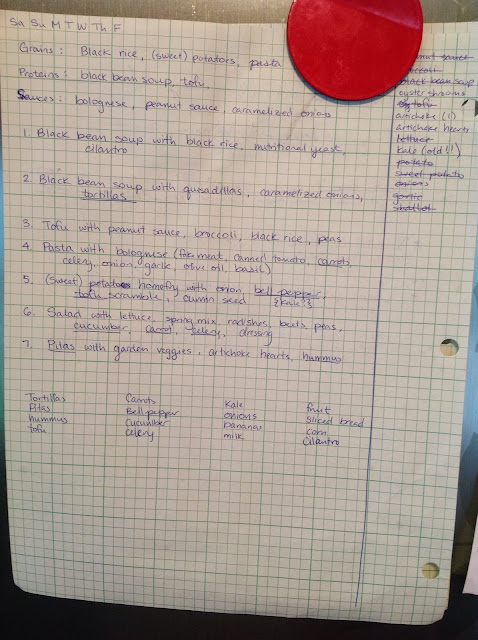 Sa Su M T W Th F
Grains: Black rice, (sweet) potatoes, pasta
Proteins: black bean soup, tofu,
Sauces: bolognese, peanut sauce, caramelized onions
1. Black bean soup with black rice, nutritional yeast,
cilantro
2. Black bean soup with quesadillas, caramelized onions,
tortillas
3. Tofu with peanut sauce, broccoli, black rice, peas
4. Pasta with bolognese (fake meat, canned tomato, carrots
celery, onion, garlic, olive oil, basil)
5. (Sweet) potatoes homefry with onion, bell pepper,
tofu scramble, cumin seed {kale?}
6. Salad with lettuce, spring mix, radishes, beets, peas,
cucumber, carrot, celery, dressing
7. Pitas with garden veggies, artichoke hearts, hummus
Tortillas Carrots Kale fruit
Pitas Bell pepper onions sliced bread
hummus Cucumber bananas corn
tofu Celery milk Cilantro
sauce
black bean soup
oyster shrooms
tofu
artichoke (1)
artichoke hearts
lettuce
kale (old!!)
potato
sweet potato
onions
garlic
shallot